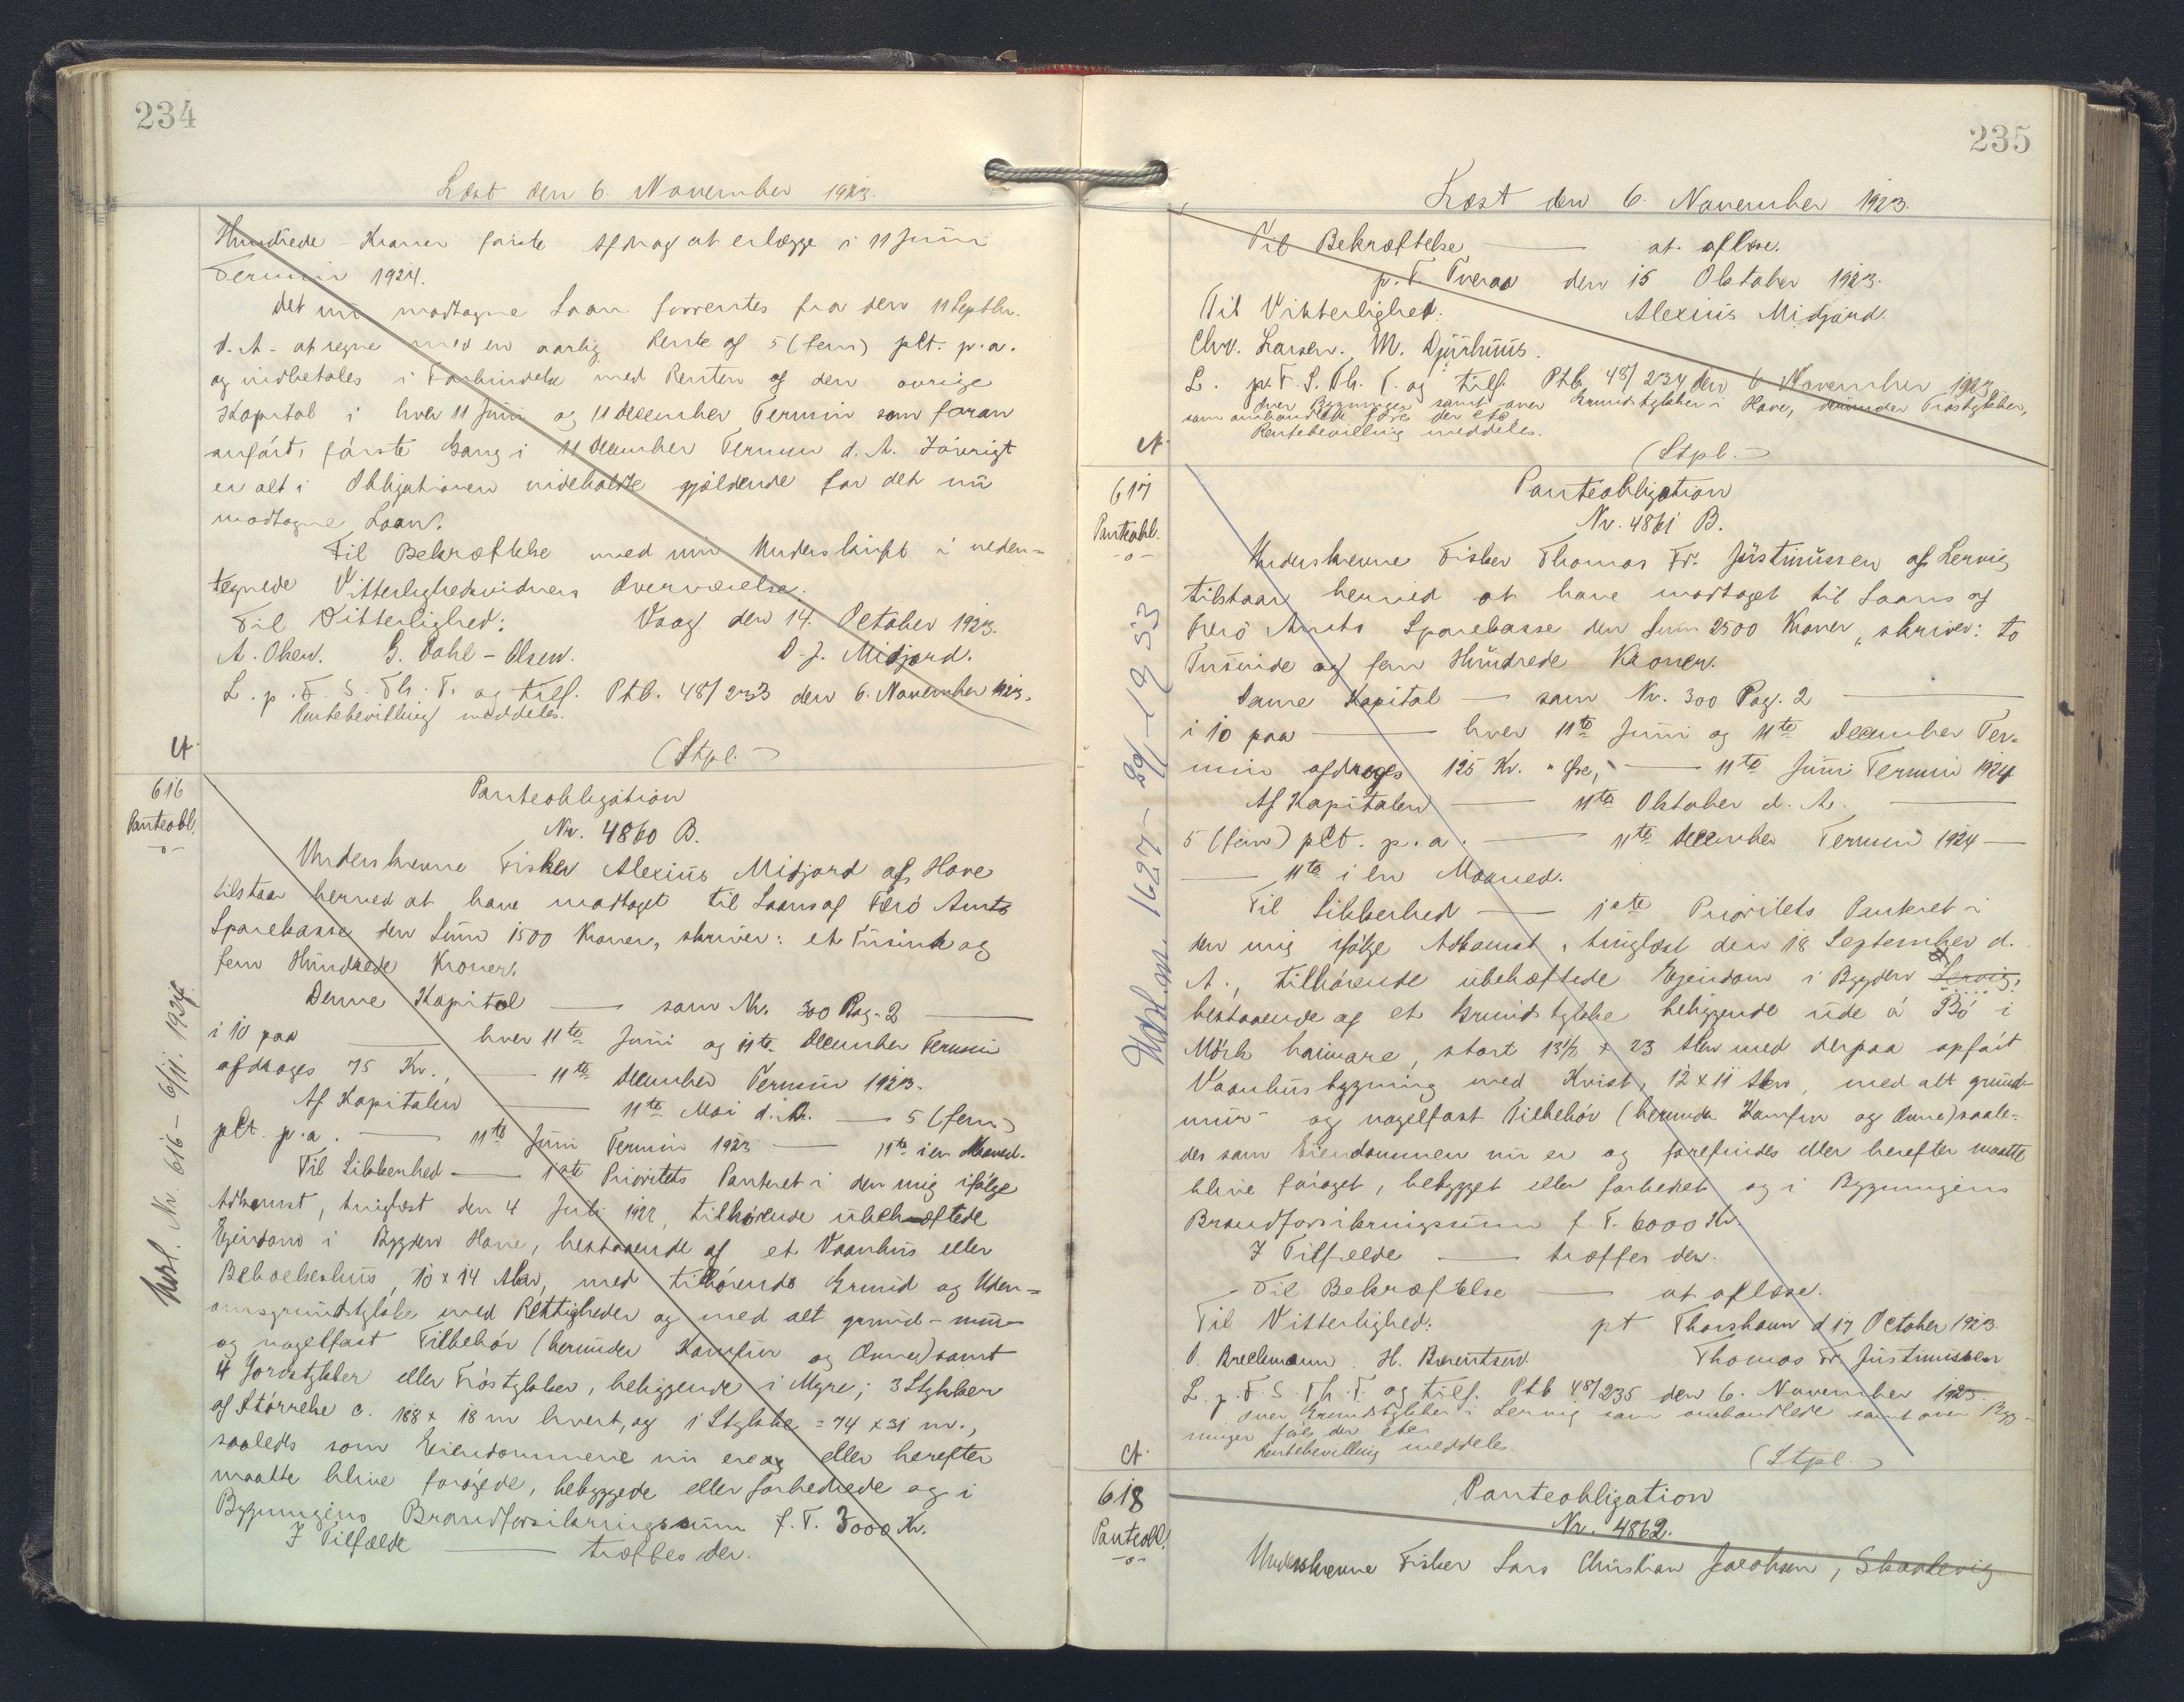 234
Læst den 6. November 1923.
Hundrede Kroner første Afdrag at erlægge i 11 Juni
Termin 1924.
Det nu modtagne Laan forrentes fra den 11 Septbr.
d. A. at regne med en aarlig Rente af 5 (fem) pCt. p.a.
og indbetales i Forbindelse med Renten af den øvrige
Kapital i hver 11 Juni og 11 December Termin som foran
anført, første Gang i 11 December Termin d. A. Iøvrigt
er alt i Obligationen indeholdte gjældende for det nu
modtagne Laan.
Til Bekræftelse med min Underskrift i neden=
tegnede Vitterlighedsvidners Overværelse.
Til Vitterlighed: Vaag den 14. October 1923.
A. Olsen. G. Dahl-Olsen. D. J. Midjord.
L. p. F. S. Th. T. og tilf. Ptb. 48/233 den 6. November 1923.
Rentebevilling meddeles.
(Stpl.)
A.
616
Panteobl.
-o-
Panteobligation
Nr. 4860 B.
Underskrevne Fisker Alexius Midjord af Hove
tilstaar herved at have modtaget til Laans af Færø Amts
Sparekasse den Sum 1500 Kroner, skriver: et Tusinde og
fem Hundrede Kroner.
Denne Kapital — som Nr. 300 Pag. 2 —
i 10 paa — hver 11te Juni og 11te December Termin
afdrages 75 Kr., — 11te December Termin 1923.
Af Kapitalen — 11te Mai d. A. — 5 (fem)
pCt. p.a. — 11te Juni Termin 1923 — 11te i en Maaned.
Til Sikkerhed — 1ste Prioritets Panteret i den mig ifølge
Adkomst, tinglæst den 4 Juli 1922, tilhørende ubehæftede
Ejendom i Bygden Hove, bestaaende af et Vaanhus eller
Beboelseshus, 10 x 14 Alen, med tilhørende Grund og Uden=
omsgrundstykke med Rettigheder og med alt grund- mur-
og nagelfast Tilbehør (herunder Komfur og Ovne) samt
4 Jordstykker eller Trøstykker, beliggende i Myre; 3 Stykker
af Størrelse c. 188 x 18 m hvert, og 1 Stykke = 74 x 31 m.,
saaledes som Eiendommene nu ere og eller herefter
maatte blive forøgede, bebyggede eller forbedrede og i
Bygningens Brandforsikringssum f. T. 3000 Kr.
I Tilfælde — træffes der.
Udsl. Nr. 616 - 6/11. 1924.
235
Læst den 6. November 1923.
Til Bekræftelse — at aflæse.
p. T. Tveraa den 15 Oktober 1923.
Til Vitterlighed. Alexius Midjord.
Chr. Larsen. M. Djurhuus.
L. p. F. S. Th. T. og tilf. Ptb. 48/234 den 6 November 1923
over Bygninger samt over Grundstykker i Hove, derunder Trøstykker,
som omhandlede føres der etc
Rentebevilling meddeles.
(Stpl.)
A.
617
Panteobl.
-o-
Panteobligation
Nr. 4861 B.
Underskrevne Fisker Thomas Fr. Justinussen af Lervig
tilstaar herved at have modtaget til Laans af
Færø Amts Sparekasse den Sum 2500 Kroner, skriver: to
Tusinde og fem Hundrede Kroner.
Denne Kapital — som Nr. 300 Pag. 2 —
i 10 paa — hver 11te Juni og 11te December Ter=
min afdrages 125 Kr. " Øre, — 11te Juni Termin 1924
Af Kapitalen — 11te Oktober d. A. —
5 (fem) pCt. p. a. — 11te December Termin 1924 —
— 11te i en Maaned.
Til Sikkerhed — 1ste Prioritets Panteret i
den mig ifølge Adkomst, tinglæst den 18 September d.
A., tilhørende ubehæftede Ejendom i Bygden Lervig,
bestaaende af et Grundstykke beliggende ude á Bö i
Mörk haimare, stort 13½ x 23 Alen med derpaa opført
Vaanhusbygning med Kvist, 12 x 11 Alen, med alt grund-
mur- og nagelfast Tilbehør (herunder Komfur og Ovne) saale=
des som Eiendommen nu er og forefindes eller herefter maatte
blive forøget, bebygget eller forbedret og i Bygningens
Brandforsikringssum f. T. 6000 Kr.
I Tilfælde — træffes der.
Til Bekræftelse — at aflæse.
Til Vitterlighed: pt Thorshavn d 17 October 1923.
O. Brechmann. H. Berentsen. Thomas Fr. Justinussen
L. p. F. S. Th. T. og tilf. Ptb 48/235 den 6. November 1923
over Grundstykker i Lervig som omhandlede samt over Byg=
ninger føres der etc.
Rentebevilling meddeles.
(Stpl.)
A.
Udsl. 1627 - 29/ - 1953
618
Panteobl.
-o-
Panteobligation
Nr. 4862.
Underskrevne Fisker Lars Christian Jacobsen, Skaalevig